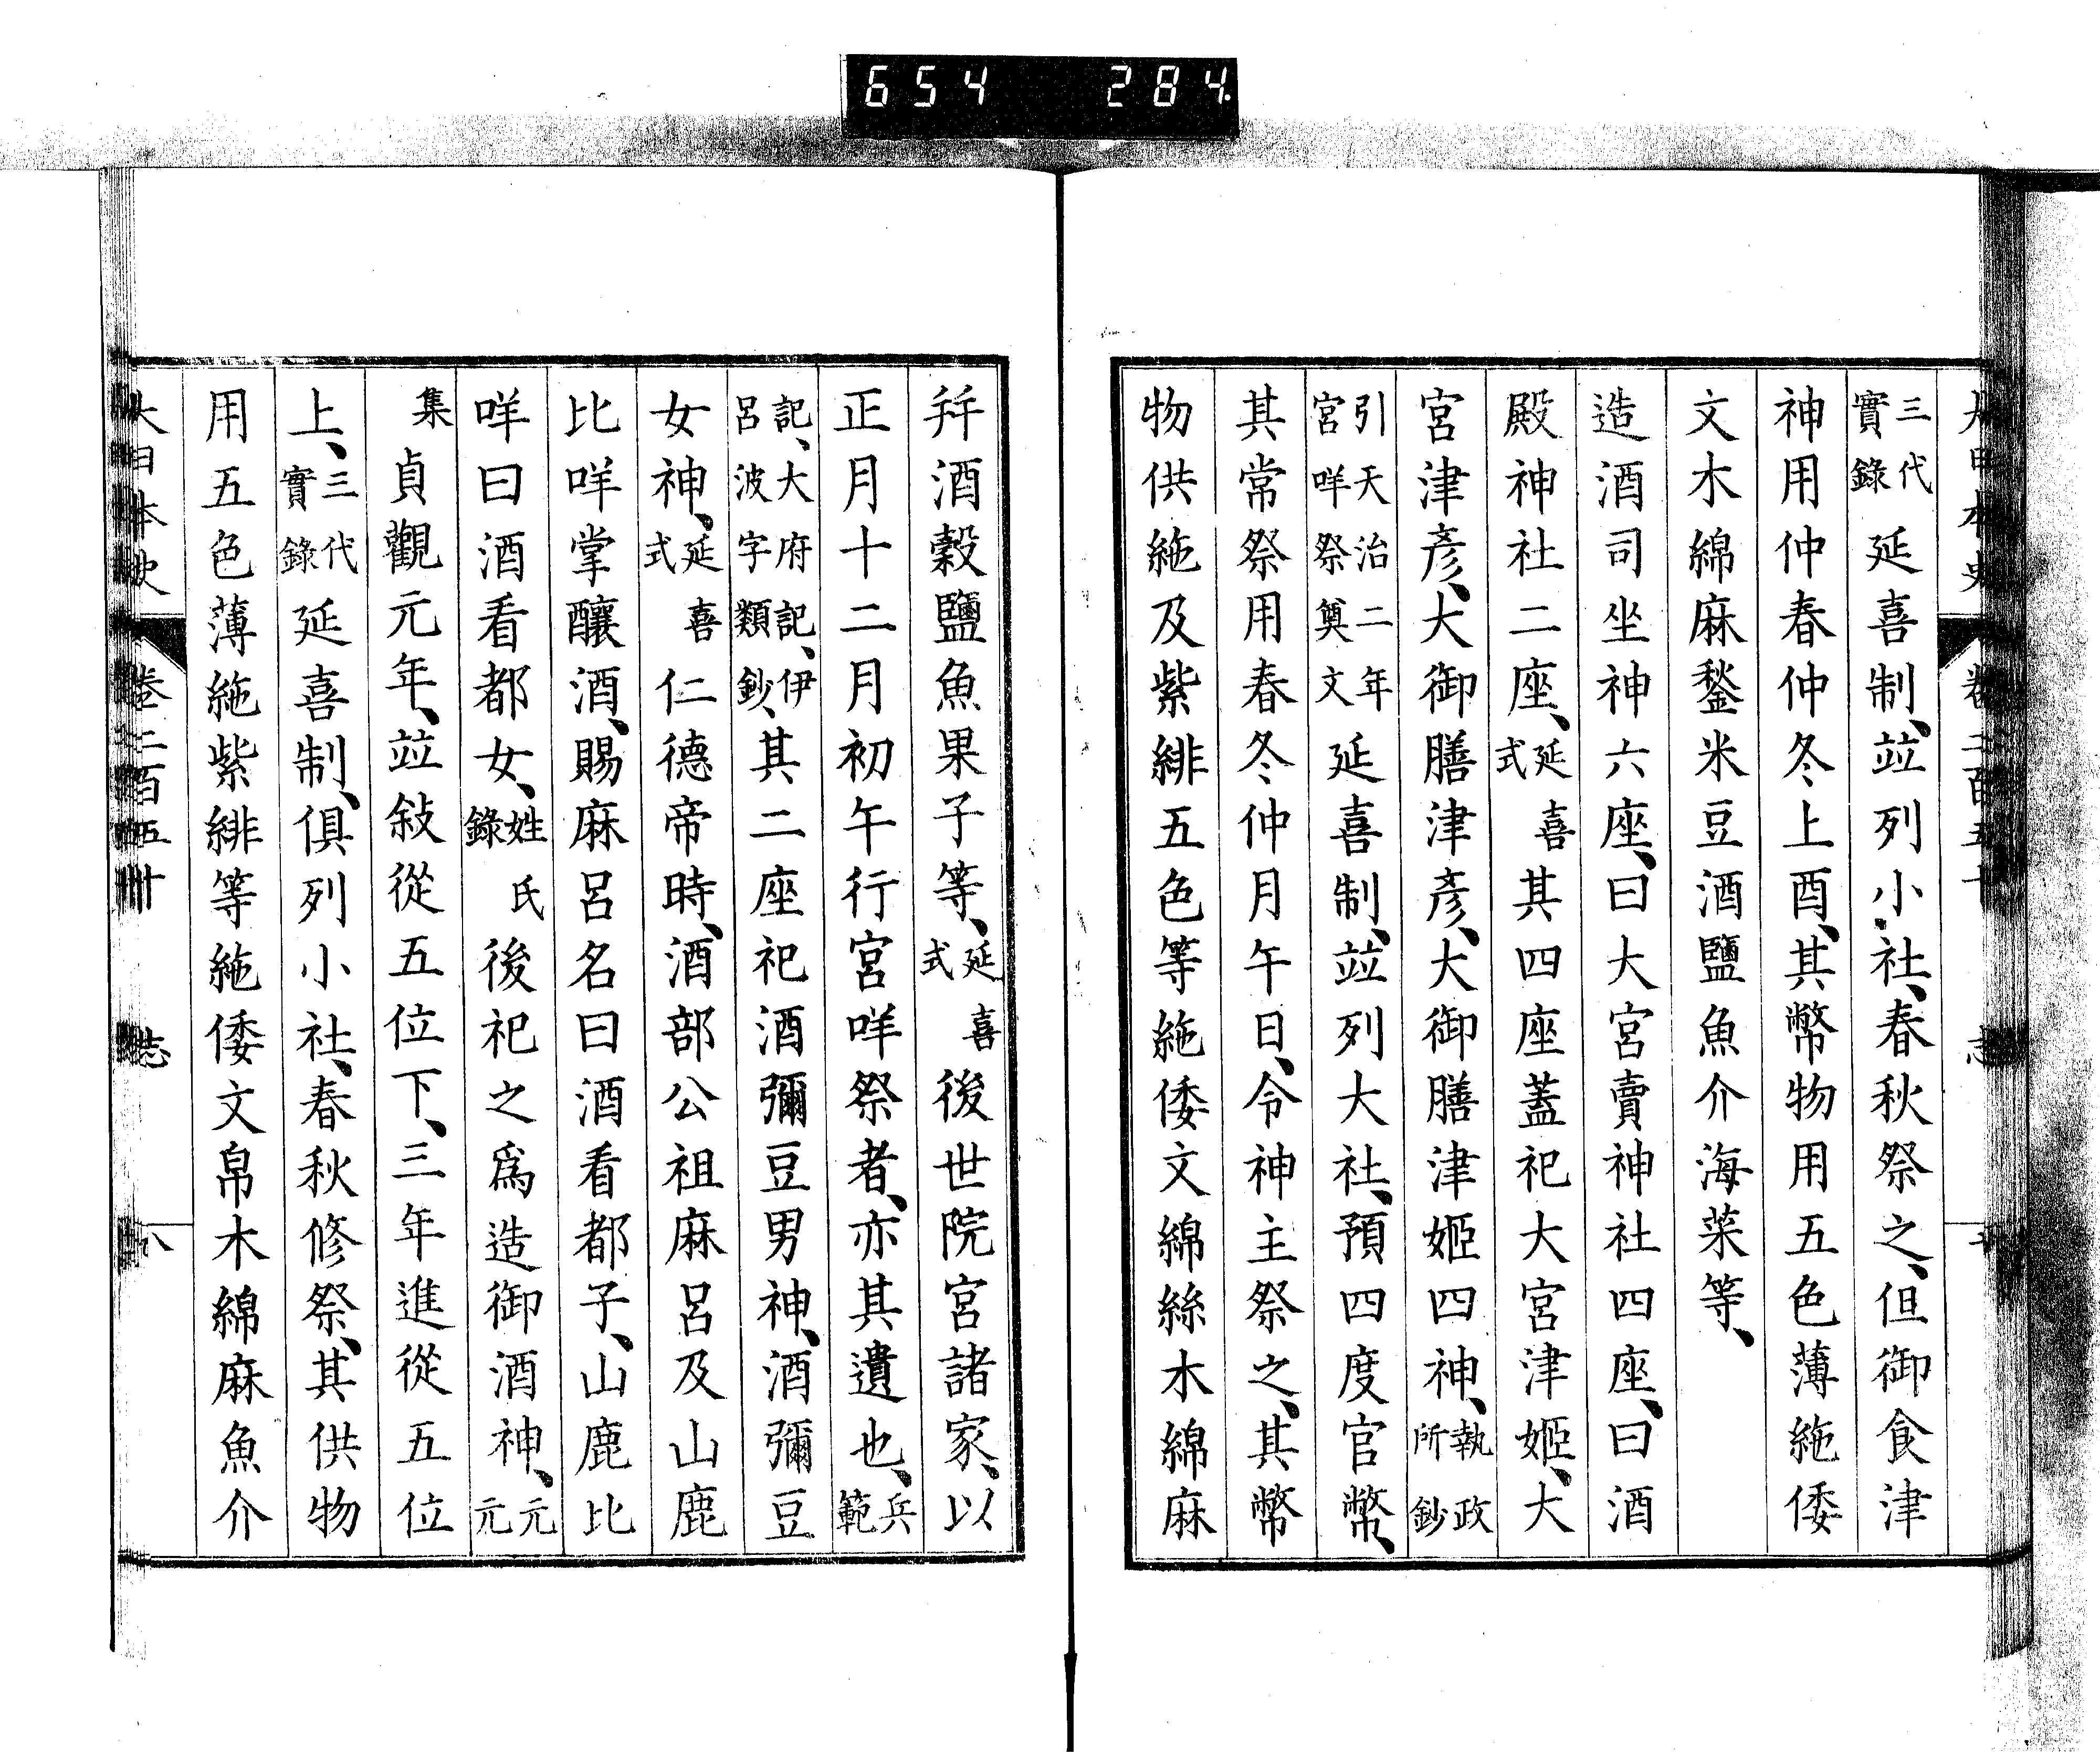 654 284.
三代實錄延喜制、竝列小社、春秋祭之、但御食津
神用仲春仲冬上酉、其幣物用五色薄絁倭
文木綿麻鍫米豆酒鹽魚介海菜等、
造酒司坐神六座、曰大宮賣神社四座、曰酒
殿神社二座、延喜式其四座蓋祀大宮津姬、大
宮津彥、大御膳津彥、大御膳津姬四神、執政所鈔
引天治二年宮咩祭奠文延喜制、竝列大社、預四度官幣、
其常祭用春冬仲月午日、令神主祭之、其幣
物供絁及紫緋五色等絁倭文綿絲木綿麻
幷酒穀鹽魚果子等、延喜式後世院宮諸家、以
正月十二月初午行宮咩祭者、亦其遺也、兵範
記、大府記、伊呂波字類鈔、其二座祀酒彌豆男神、酒彌豆
女神、延喜式仁德帝時、酒部公祖麻呂及山鹿
比咩掌釀酒、賜麻呂名曰酒看都子、山鹿比
咩曰酒看都女、姓氏錄後祀之爲造御酒神、元元
集貞觀元年、竝敍從五位下、三年進從五位
上、三代實錄延喜制、俱列小社、春秋修祭、其供物
用五色薄絁紫緋等絁倭文帛木綿麻魚介
大日本史 卷二百五十 志 八